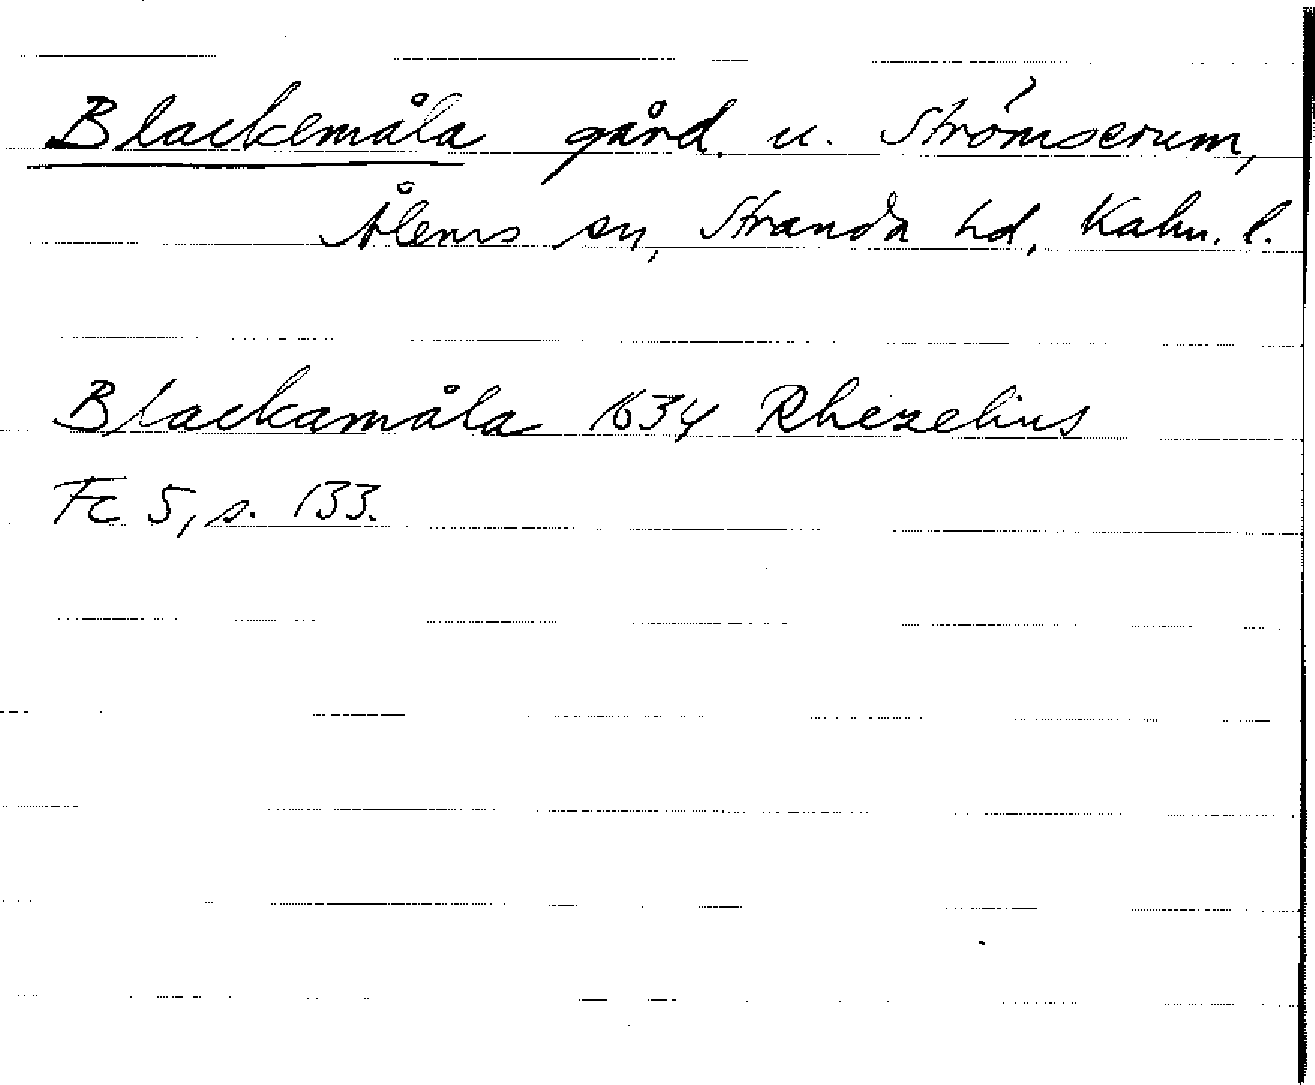 Blackemåla gård. u. Strömserum,
Ålems sn, Stranda hd, Kalm. l.
Blackamåla 1634 Rhezelius
Fc 5, s. 133.